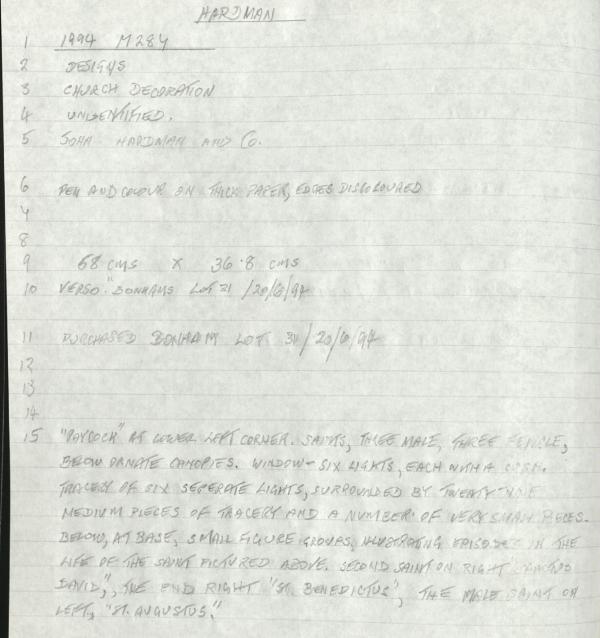 HARDMAN
1 1994 M284
2 DESIGNS
3 CHURCH DECORATION
4 UNIDENTIFIED.
5 JOHN HARDMAN AND Co.
6 PEN AND COLOUR ON THICK PAPER, EDGES DISCOLOURED
7
8
9 68 cms X 36.8 cms
10 VERSO "BONHAMS LOT 31 /20/6/94
11 PURCHASED BONHAM LOT 31/20/6/94
12
13
14
15 "PAYCOCK" AT LOWER LEFT CORNER. SAINTS, THREE MALE, THREE FEMALE,
BELOW ORNATE CANOPIES. WINDOW - SIX LIGHTS, EACH WITH A
TRACERY OF SIX SEPERATE LIGHTS, SURROUNDED BY TWENTY-NINE
MEDIUM PIECES OF TRACERY AND A NUMBER OF VERY SMALL PIECES.
BELOW, AT BASE, SMALL FIGURE GROUPS, ILLUSTRATING EPISODES IN THE
LIFE OF THE SAINT PICTURED ABOVE. SECOND SAINT ON RIGHT "SANCTUS
DAVID", THE END RIGHT "ST. BENEDICTUS", THE MALE SAINT ON
LEFT, "ST. AUGUSTUS."